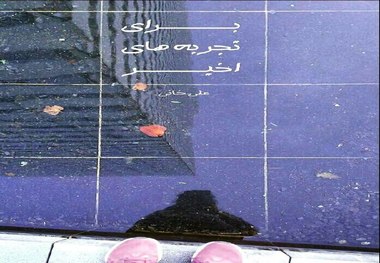 برای
تجربه های
اخیر
علی خانی